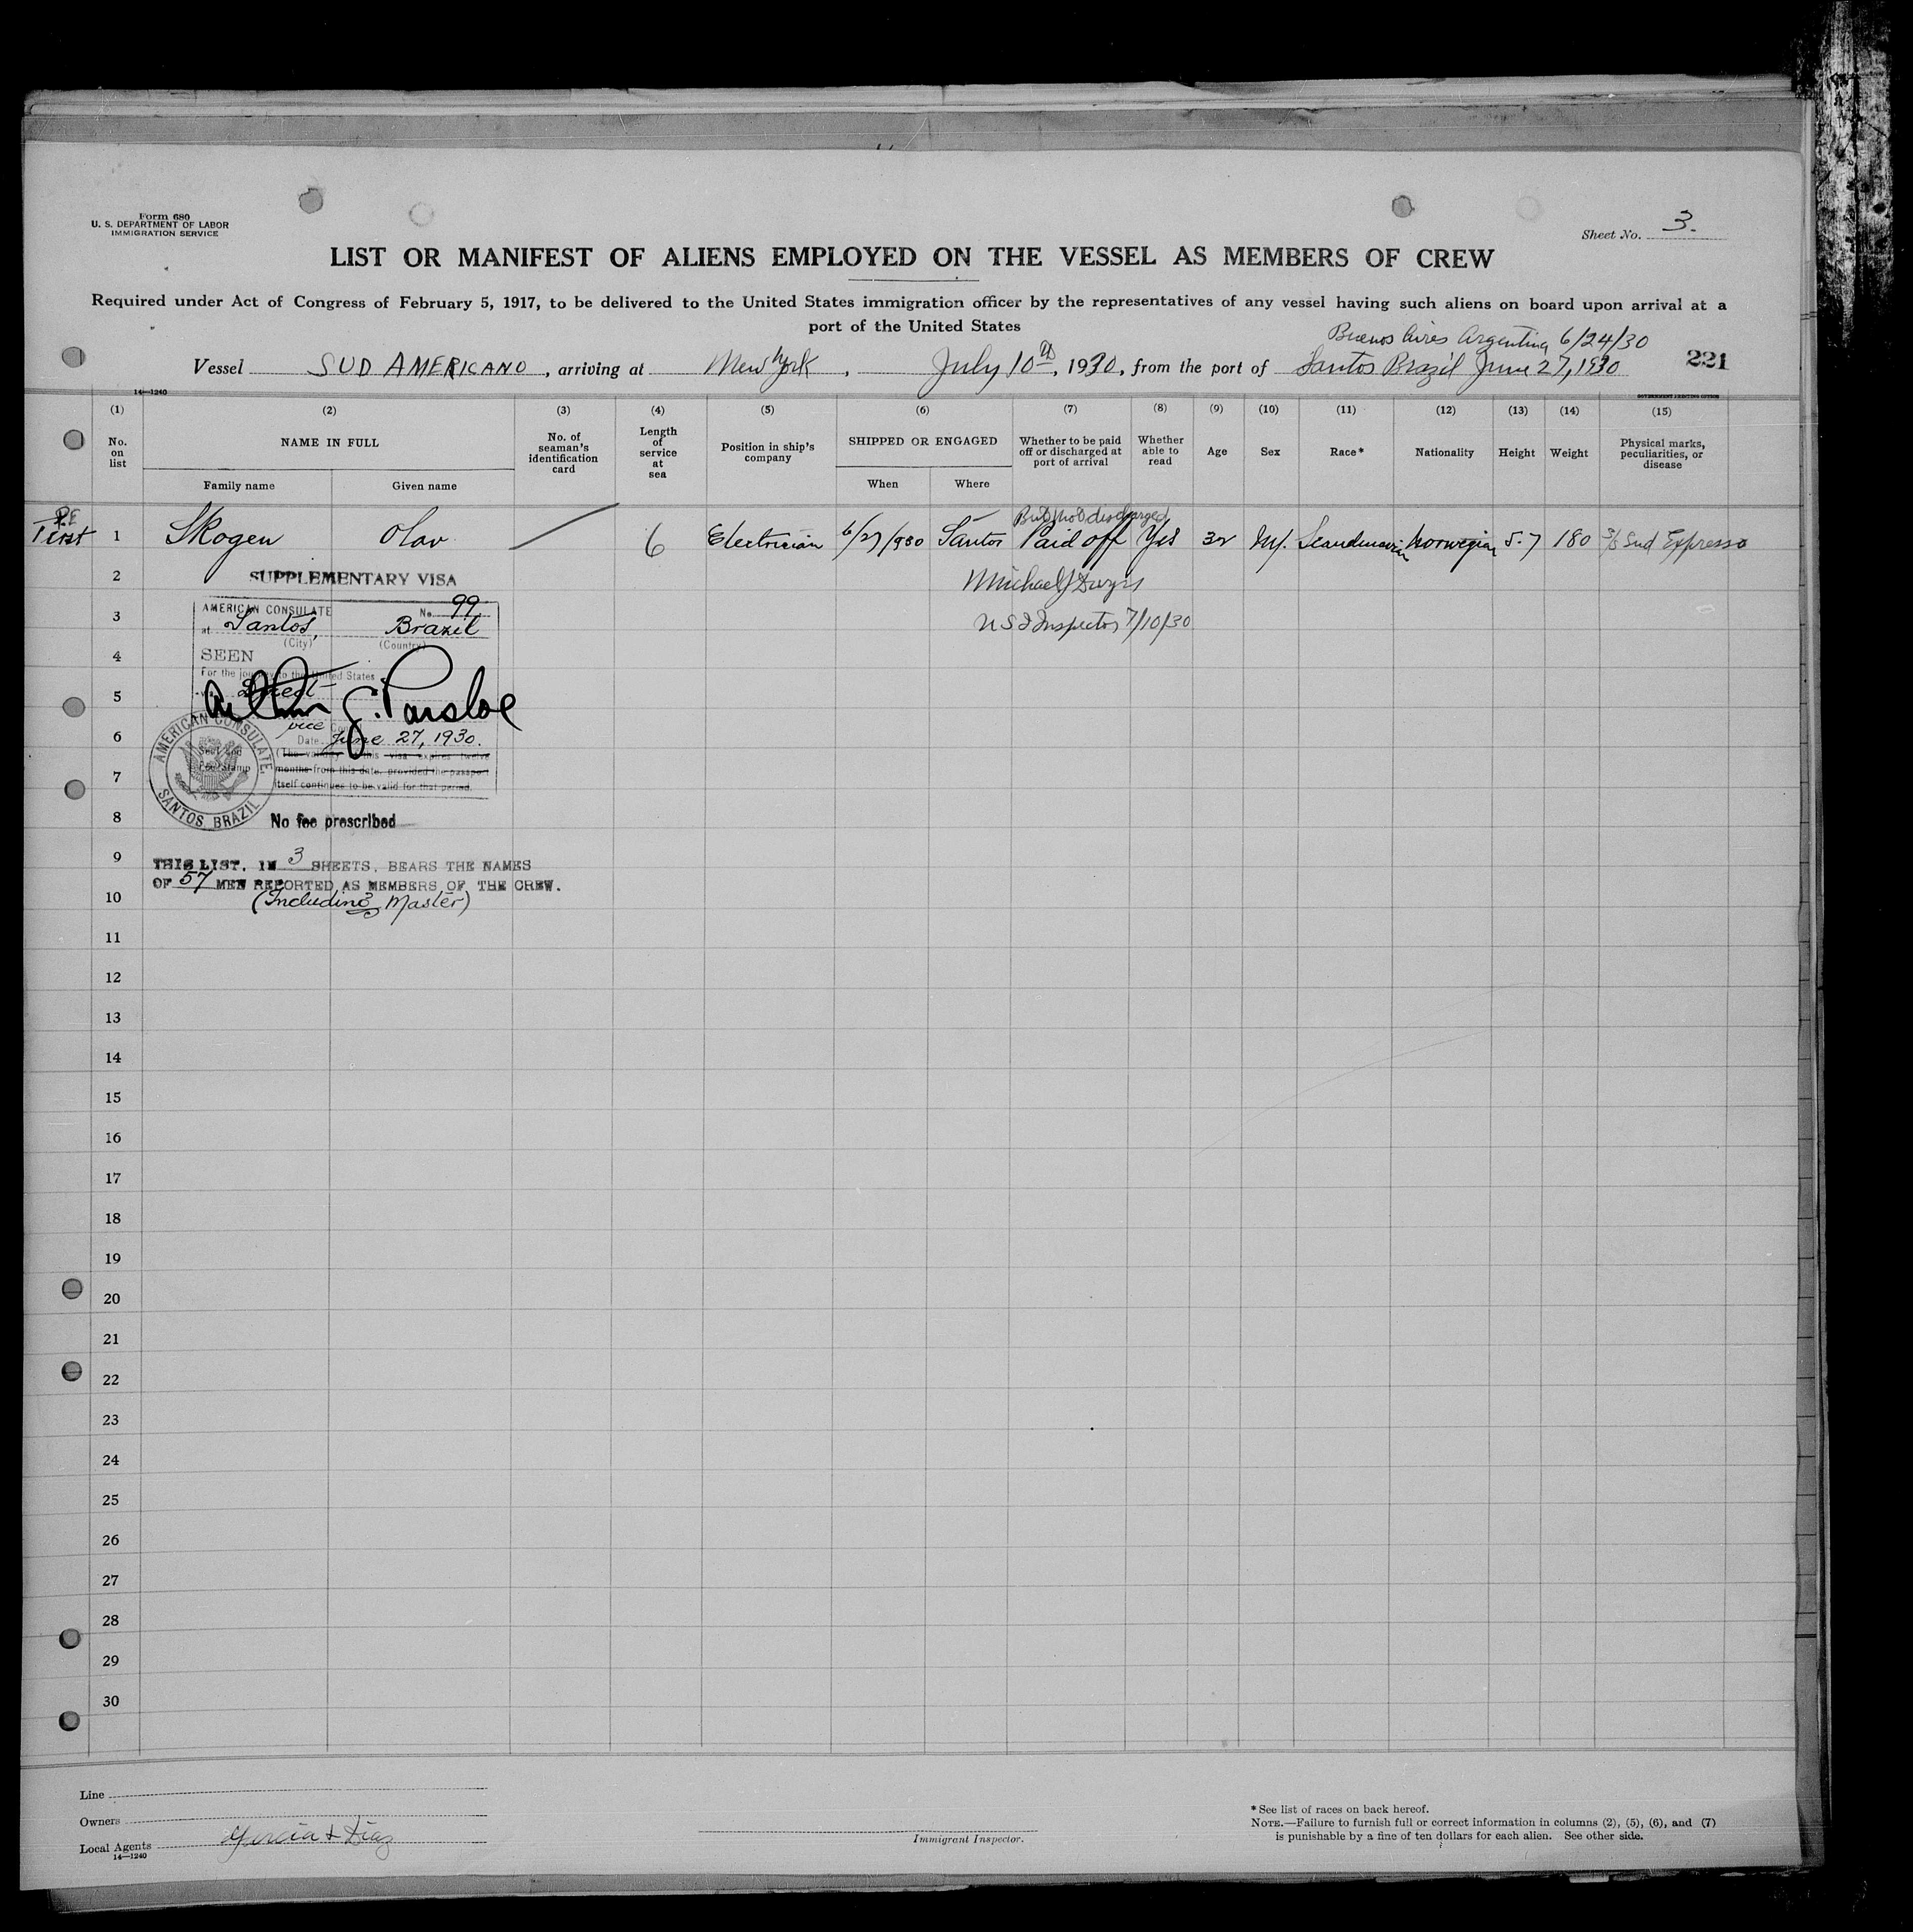 Form 680
U. S. DEPARTMENT OF LABOR
IMMIGRATION SERVICE
Sheet No. 3.
LIST OR MANIFEST OF ALIENS EMPLOYED ON THE VESSEL AS MEMBERS OF CREW
Required under Act of Congress of February 5, 1917, to be delivered to the United States immigration officer by the representatives of any vessel having such aliens on board upon arrival at a
port of the United States
Buenos Aires Argentina 6/24/30
Vessel SUD AMERICANO, arriving at New York, July 10th, 1930, from the port of Santos Brazil June 27, 1930 221
14—1240 GOVERNMENT PRINTING OFFICE
(1) (2) (3) (4) (5) (6) (7) (8) (9) (10) (11) (12) (13) (14) (15)
No. on list
NAME IN FULL
Family name
Given name
No. of seaman's identification card
Length of service at sea
Position in ship's company
SHIPPED OR ENGAGED
When
Where
Whether to be paid off or discharged at port of arrival
Whether able to read
Age
Sex
Race*
Nationality
Height
Weight
Physical marks, peculiarities, or disease
But not discharged
1 Skogen Olav 6 Electrician 6/27/930 Santos Paid off Yes 32 M. Scandinavian Norwegian 5.7 180 S/S Sud Expresso
2 SUPPLEMENTARY VISA
Michael J
AMERICAN CONSULATE No. 99
3 at Santos, Brazil
(City) (Country)
U S I Inspector 7/10/30
4 SEEN
For the journey to the United States
5 Direct
Arthur G. Parsloe
vice Consul
6 Date June 27, 1930.
(The validity of this visa expires twelve
7 months from this date, provided the passport
itself continues to be valid for that period.
AMERICAN CONSULATE
SANTOS, BRAZIL
8 No fee prescribed
9 THIS LIST, IN 3 SHEETS, BEARS THE NAMES
OF 57 MEN REPORTED AS MEMBERS OF THE CREW.
10 (Including Master)
11
12
13
14
15
16
17
18
19
20
21
22
23
24
25
26
27
28
29
30
Line
Owners
Local Agents Garcia & Diaz
14—1240
Immigrant Inspector.
*See list of races on back hereof.
NOTE.—Failure to furnish full or correct information in columns (2), (5), (6), and (7)
is punishable by a fine of ten dollars for each alien. See other side.